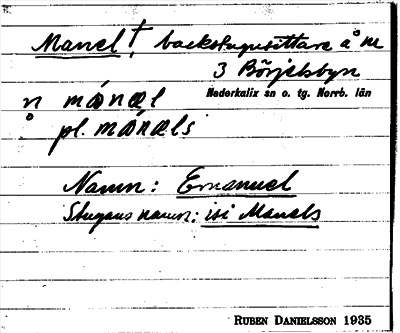 Manel † backstugusittare å nr
3 Börjelsbyn
Nederkalix sn o. tg. Norrb. län
n månæl
pl. månæls
Namn: Emanuel
Stugans namn: isi Manels
RUBEN DANIELSSON 1935